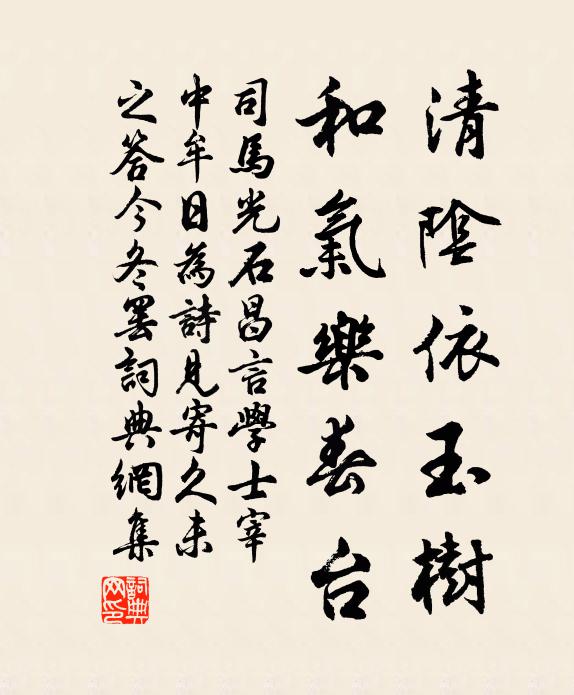 清陰依玉樹
和氣樂春台
司馬光石昌言學士宰
中牟日為詩見寄久未
之答今冬罢詞典網集
詞典
网印